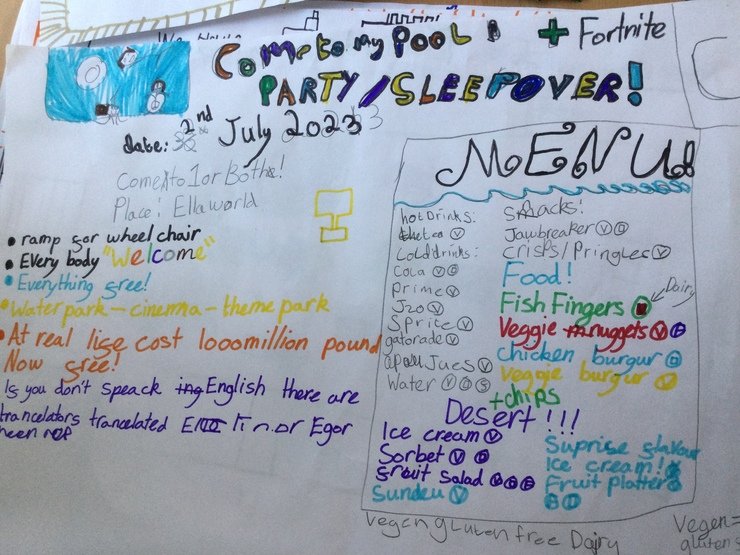 Come to my POOL! + Fortnite
PARTY/SLEEPOVER!
date: 2nd July 2023
Come to 1 or Both!
Place: Ellaworld
• ramp for wheel chair
• Every body "Welcome"
• Everything free!
• Water park - cinema - theme park
• At real life cost 1000million pound
Now free!
If you don't speack English there are
trancelators trancelated
MENU!
hot Drinks:
V
Cold drinks:
Cola V G
Prime V
J2o V
Sprite V
gatorade V
Jues V
Water V G
Snacks!
Jawbreaker V G
Crisps/Pringles V
Food!
Fish Fingers
Dairy
Veggie nuggets V
chicken burgur
veggie burgur V
+chips
Desert!!!
Ice cream V
Sorbet V
fruit salad
Sundeu V
Suprise flavour
Ice cream!
Fruit platter
Vegan gluten free Dairy
Vegen=